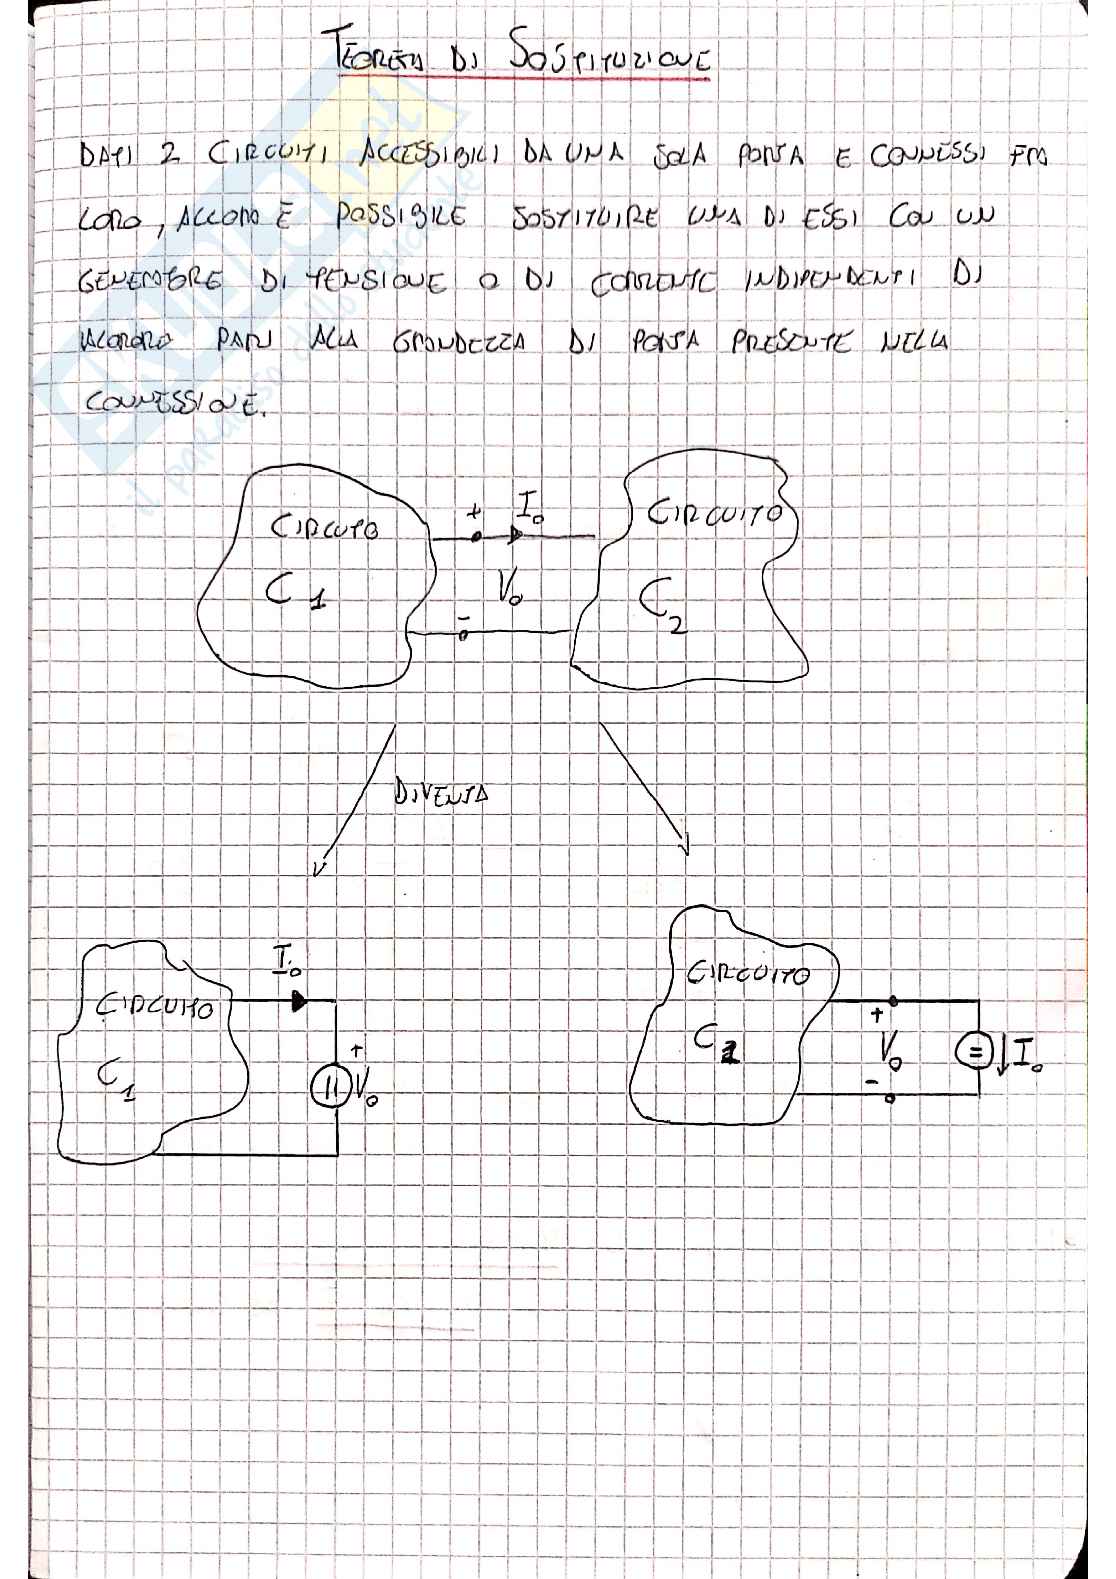 TEOREMA DI SOSTITUZIONE
DATI 2 CIRCUITI ACCESSIBILI DA UNA SOLA PORTA E CONNESSI FRA
LORO, ALLORA È POSSIBILE SOSTITUIRE UNA DI ESSI CON UN
GENERATORE DI TENSIONE O DI CORRENTE INDIPENDENTI DI
VALORORO PARI ALLA GRANDEZZA DI PORTA PRESENTE NELLA
CONNESSIONE.
CIRCUITO C1
+ I0
V0
-
CIRCUITO C2
DIVENTA
CIRCUITO C1
I0
+
V0
CIRCUITO C2
+
V0
-
I0
il paradiso dello studente